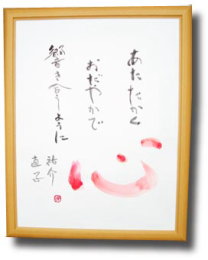 あたたかく
おだやかで
響き合うように
心
祐介
直子